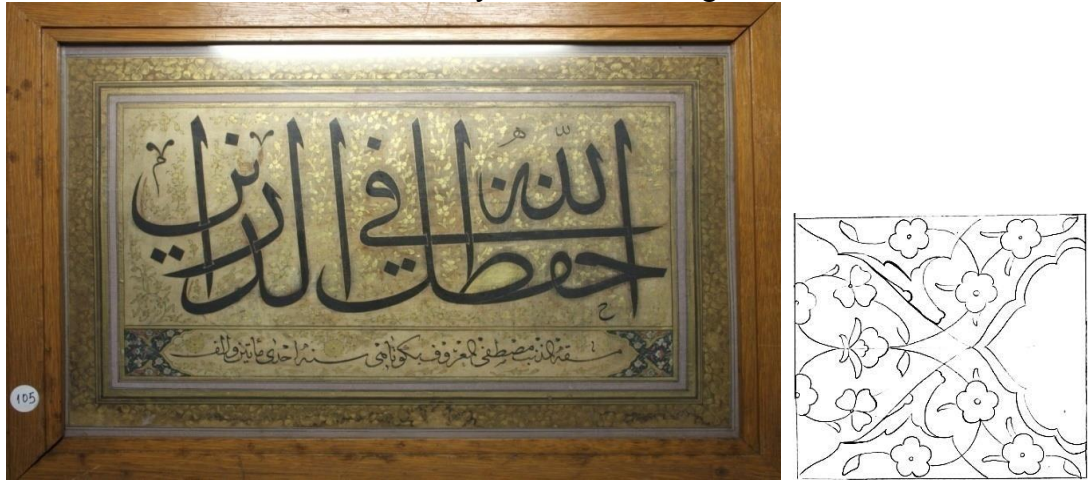 حفظك الله في الدارين
مشقه المذنب مصطفى المعروف به كوتاهى سنه احدى مأتين والف
105